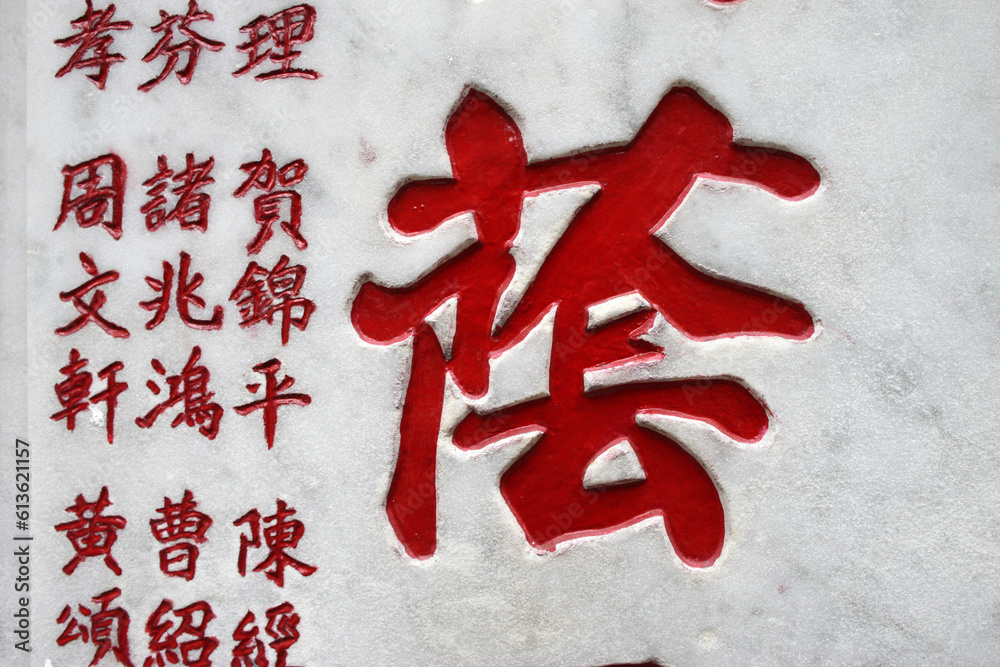 蔭
理
賀錦平
陳經
芬
諸兆鴻
曹紹
孝
周文軒
黃頌
Adobe Stock | #613621157